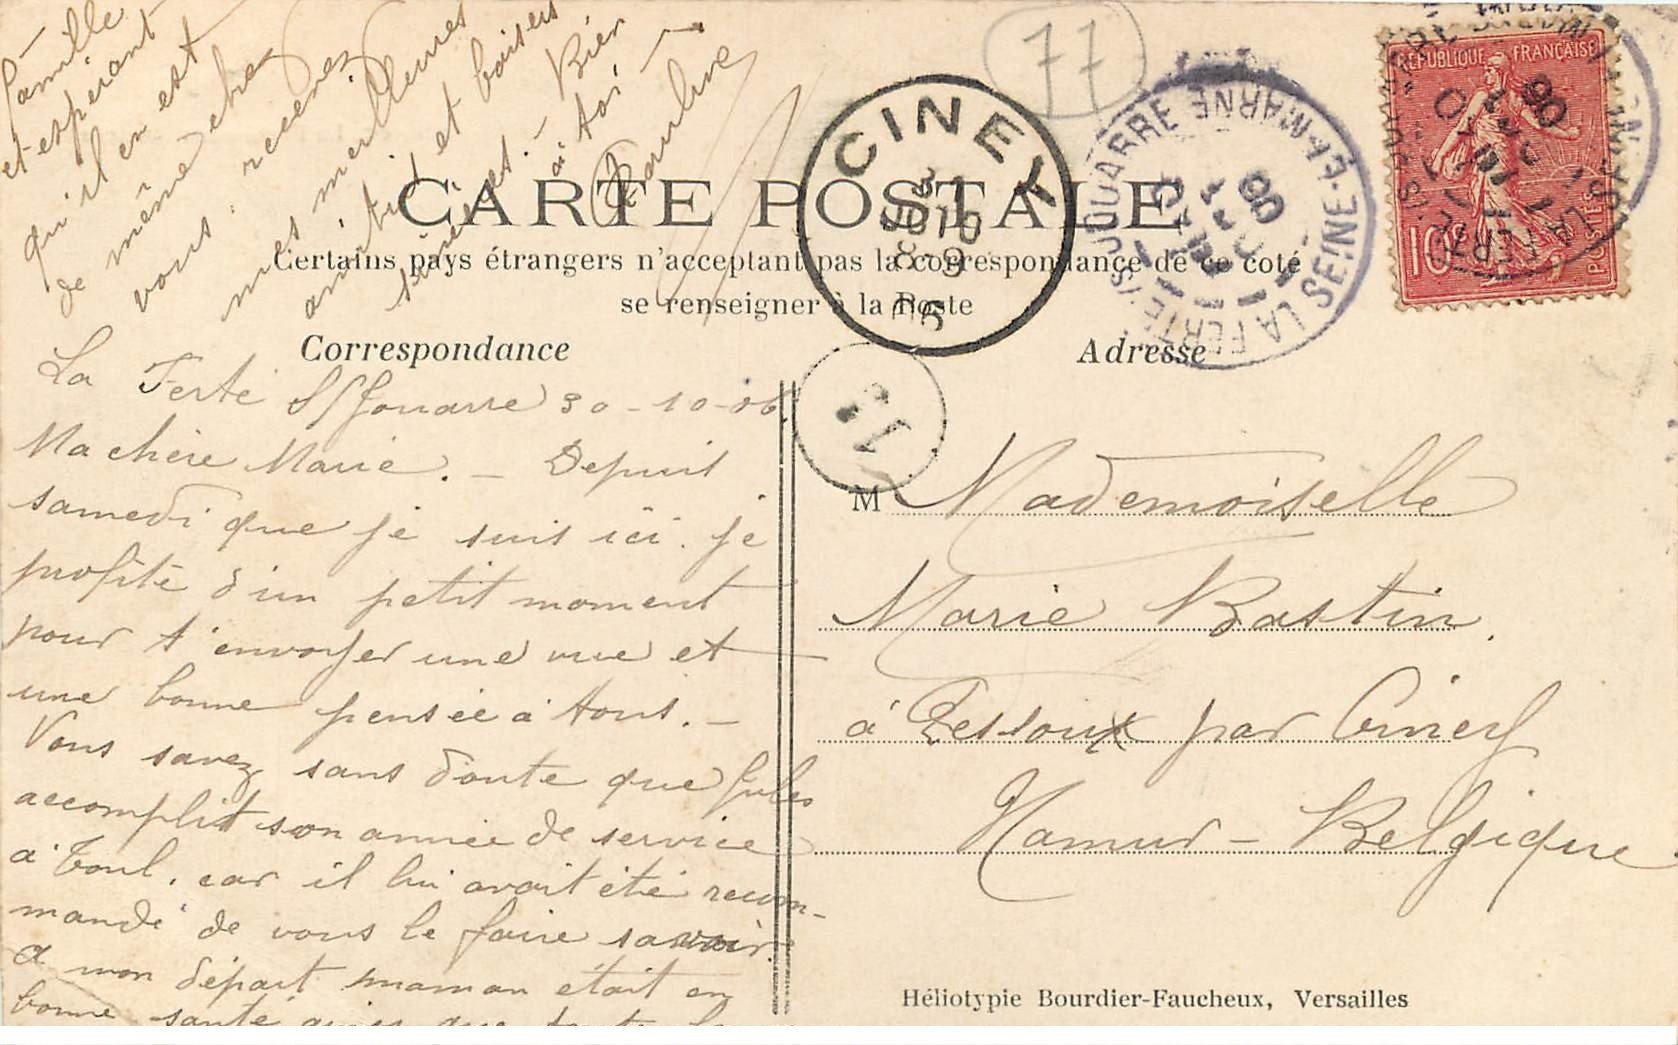 77
CARTE POSTALE
Certains pays étrangers n'acceptant pas la correspondance de ce coté
se renseigner à la Poste
Correspondance
Adresse
REPUBLIQUE FRANÇAISE
10
POSTES
CINEY
31
OCT
8-9
LA FERTE S/S JOUARRE
SEINE-ET-MARNE
La Ferté S/Jouarre 30-10-06
Ma chère Marie. - Depuis
samedi que je suis ici. je
profite d'un petit moment
pour t'envoyer une vue et
une bonne pensée à tous. -
Vous savez sans doute que Jules
accomplit son année de service
à Toul, car il lui avait été recom-
mandé de vous le faire savoir.
A mon départ maman était en
bonne santé ainsi que toute la
famille
et espérant
qu'il en est
de même chez
vous, recevez
mes meilleures
amitiés et baisers
sincères. - Bien
à toi -
M Mademoiselle
Marie Bastin.
à Pessoux par Ciney
Namur - Belgique
Héliotypie Bourdier-Faucheux, Versailles